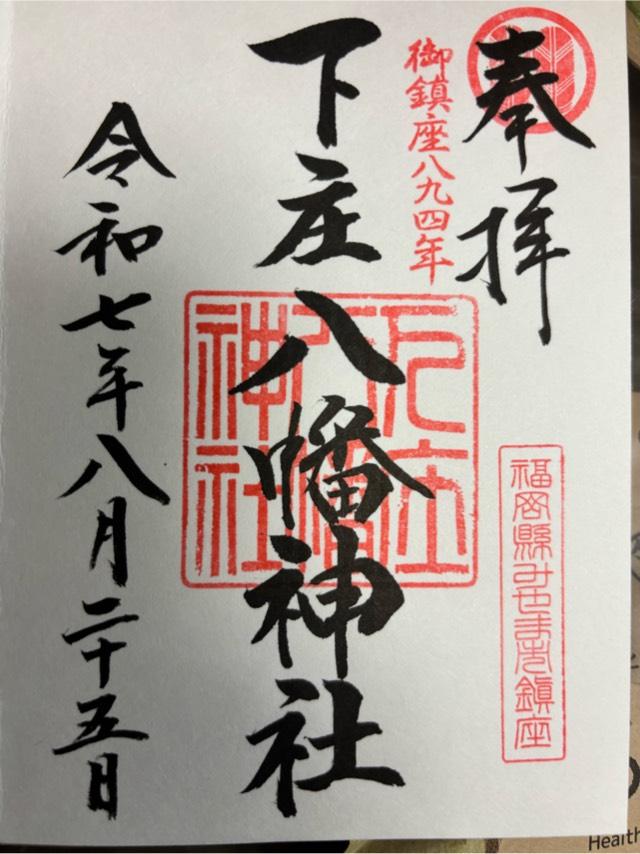 奉拝
御鎮座八九四年
福岡縣みやま市鎮座
下庄八幡神社
下庄八幡神社
令和七年八月二十五日
Health